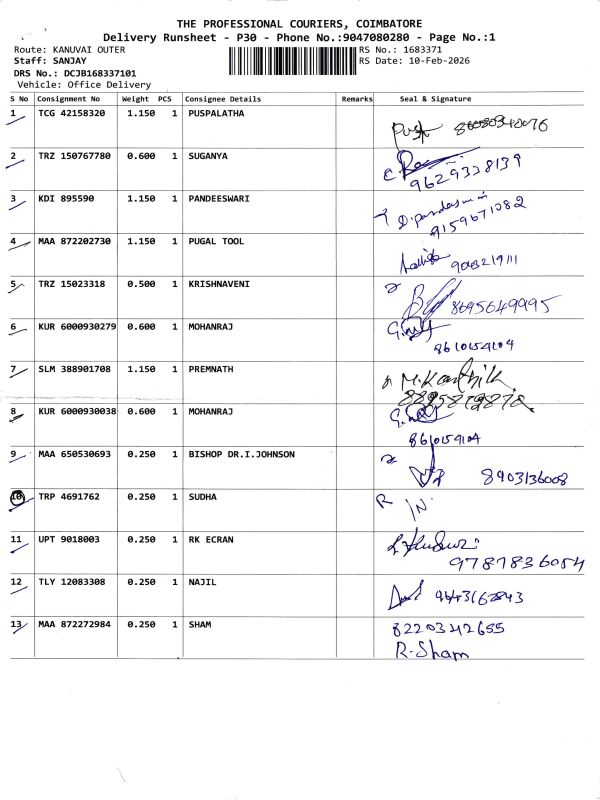 THE PROFESSIONAL COURIERS, COIMBATORE
Delivery Runsheet - P30 - Phone No.:9047080280 - Page No.:1
Route: KANUVAI OUTER RS No.: 1683371
Staff: SANJAY RS Date: 10-Feb-2026
DRS No.: DCJB168337101
Vehicle: Office Delivery
S No Consignment No Weight PCS Consignee Details Remarks Seal & Signature
1 TCG 42158320 1.150 1 PUSPALATHA
2 TRZ 150767780 0.600 1 SUGANYA
9629338139
3 KDI 895590 1.150 1 PANDEESWARI
9159671082
4 MAA 872202730 1.150 1 PUGAL TOOL
5 TRZ 15023318 0.500 1 KRISHNAVENI
8695649995
6 KUR 6000930279 0.600 1 MOHANRAJ
8610154104
7 SLM 388901708 1.150 1 PREMNATH
M.Karthik
8 KUR 6000930038 0.600 1 MOHANRAJ
8610154104
9 MAA 650530693 0.250 1 BISHOP DR.I.JOHNSON
8903136008
10 TRP 4691762 0.250 1 SUDHA
11 UPT 9018003 0.250 1 RK ECRAN
9787836054
12 TLY 12083308 0.250 1 NAJIL
13 MAA 872272984 0.250 1 SHAM 8220342655
R.Sham